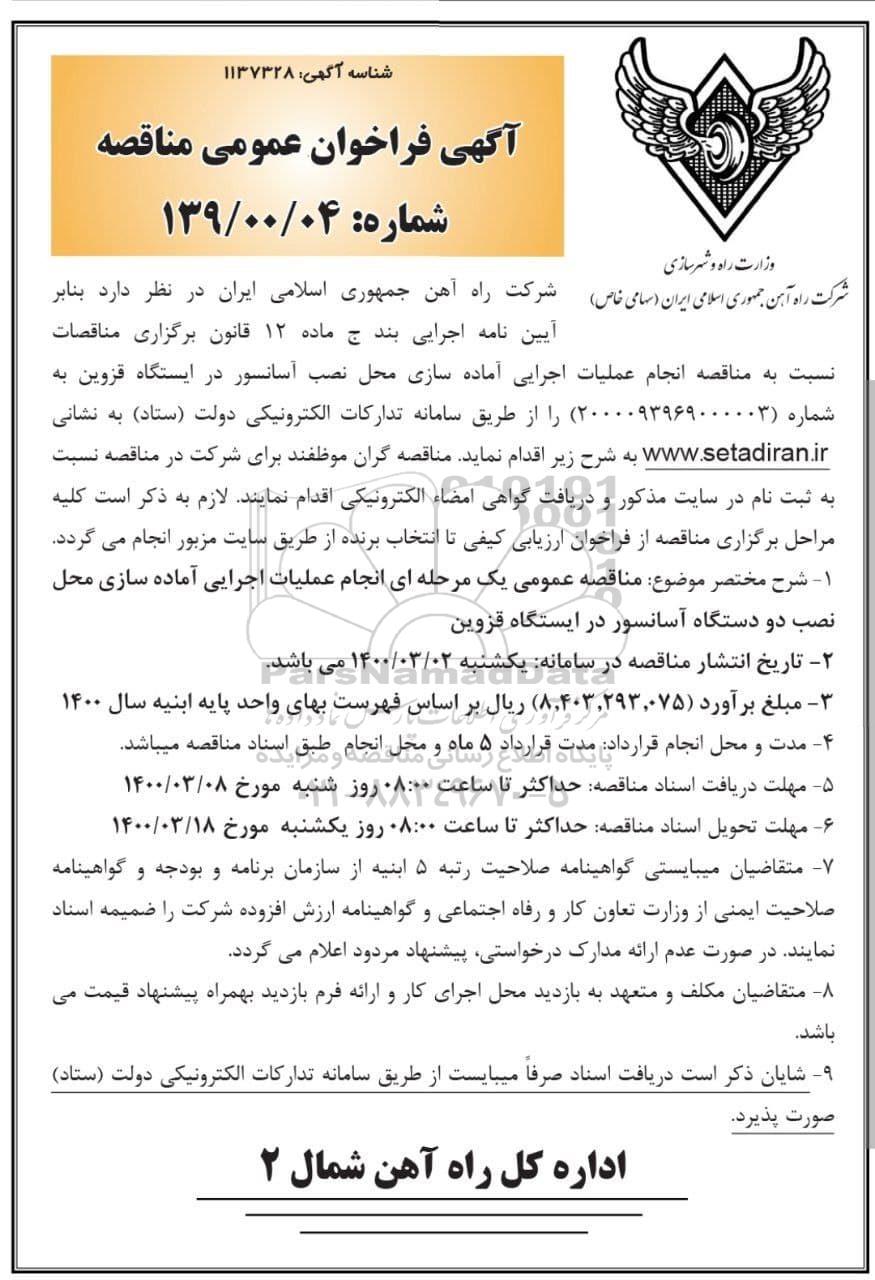 شناسه آگهی: ۱۱۳۷۳۲۸
آگهی فراخوان عمومی مناقصه
شماره: ۱۳۹/۰۰/۰۴
وزارت راه و شهرسازی
شرکت راه آهن جمهوری اسلامی ایران (سهامی خاص)
شرکت راه آهن جمهوری اسلامی ایران در نظر دارد بنابر
آیین نامه اجرایی بند ج ماده ۱۲ قانون برگزاری مناقصات
نسبت به مناقصه انجام عملیات اجرایی آماده سازی محل نصب آسانسور در ایستگاه قزوین به
شماره (۲۰۰۰۰۹۳۹۶۹۰۰۰۰۰۳) را از طریق سامانه تدارکات الکترونیکی دولت (ستاد) به نشانی
www.setadiran.ir به شرح زیر اقدام نماید. مناقصه گران موظفند برای شرکت در مناقصه نسبت
به ثبت نام در سایت مذکور و دریافت گواهی امضاء الکترونیکی اقدام نمایند. لازم به ذکر است کلیه
مراحل برگزاری مناقصه از فراخوان ارزیابی کیفی تا انتخاب برنده از طریق سایت مزبور انجام می گردد.
۱- شرح مختصر موضوع: مناقصه عمومی یک مرحله ای انجام عملیات اجرایی آماده سازی محل
نصب دو دستگاه آسانسور در ایستگاه قزوین
۲- تاریخ انتشار مناقصه در سامانه: یکشنبه ۱۴۰۰/۰۳/۰۲ می باشد.
ParsNamadData
۳- مبلغ برآورد (۸,۴۰۳,۲۹۳,۰۷۵) ریال بر اساس فهرست بهای واحد پایه ابنیه سال ۱۴۰۰
مرکز فرآوری اطلاعات پارس نماد داده ها
۴- مدت و محل انجام قرارداد: مدت قرارداد ۵ ماه و محل انجام طبق اسناد مناقصه میباشد.
پایگاه اطلاع رسانی مناقصه و مزایده
۵- مهلت دریافت اسناد مناقصه: حداکثر تا ساعت ۰۸:۰۰ روز شنبه مورخ ۱۴۰۰/۰۳/۰۸
۰۲۱-۸۸۳۴۹۶۷۰-۵
۶- مهلت تحویل اسناد مناقصه: حداکثر تا ساعت ۰۸:۰۰ روز یکشنبه مورخ ۱۴۰۰/۰۳/۱۸
۷- متقاضیان میبایستی گواهینامه صلاحیت رتبه ۵ ابنیه از سازمان برنامه و بودجه و گواهینامه
صلاحیت ایمنی از وزارت تعاون کار و رفاه اجتماعی و گواهینامه ارزش افزوده شرکت را ضمیمه اسناد
نمایند. در صورت عدم ارائه مدارک درخواستی، پیشنهاد مردود اعلام می گردد.
۸- متقاضیان مکلف و متعهد به بازدید محل اجرای کار و ارائه فرم بازدید بهمراه پیشنهاد قیمت می
باشد.
۹- شایان ذکر است دریافت اسناد صرفاً میبایست از طریق سامانه تدارکات الکترونیکی دولت (ستاد)
صورت پذیرد.
اداره کل راه آهن شمال ۲